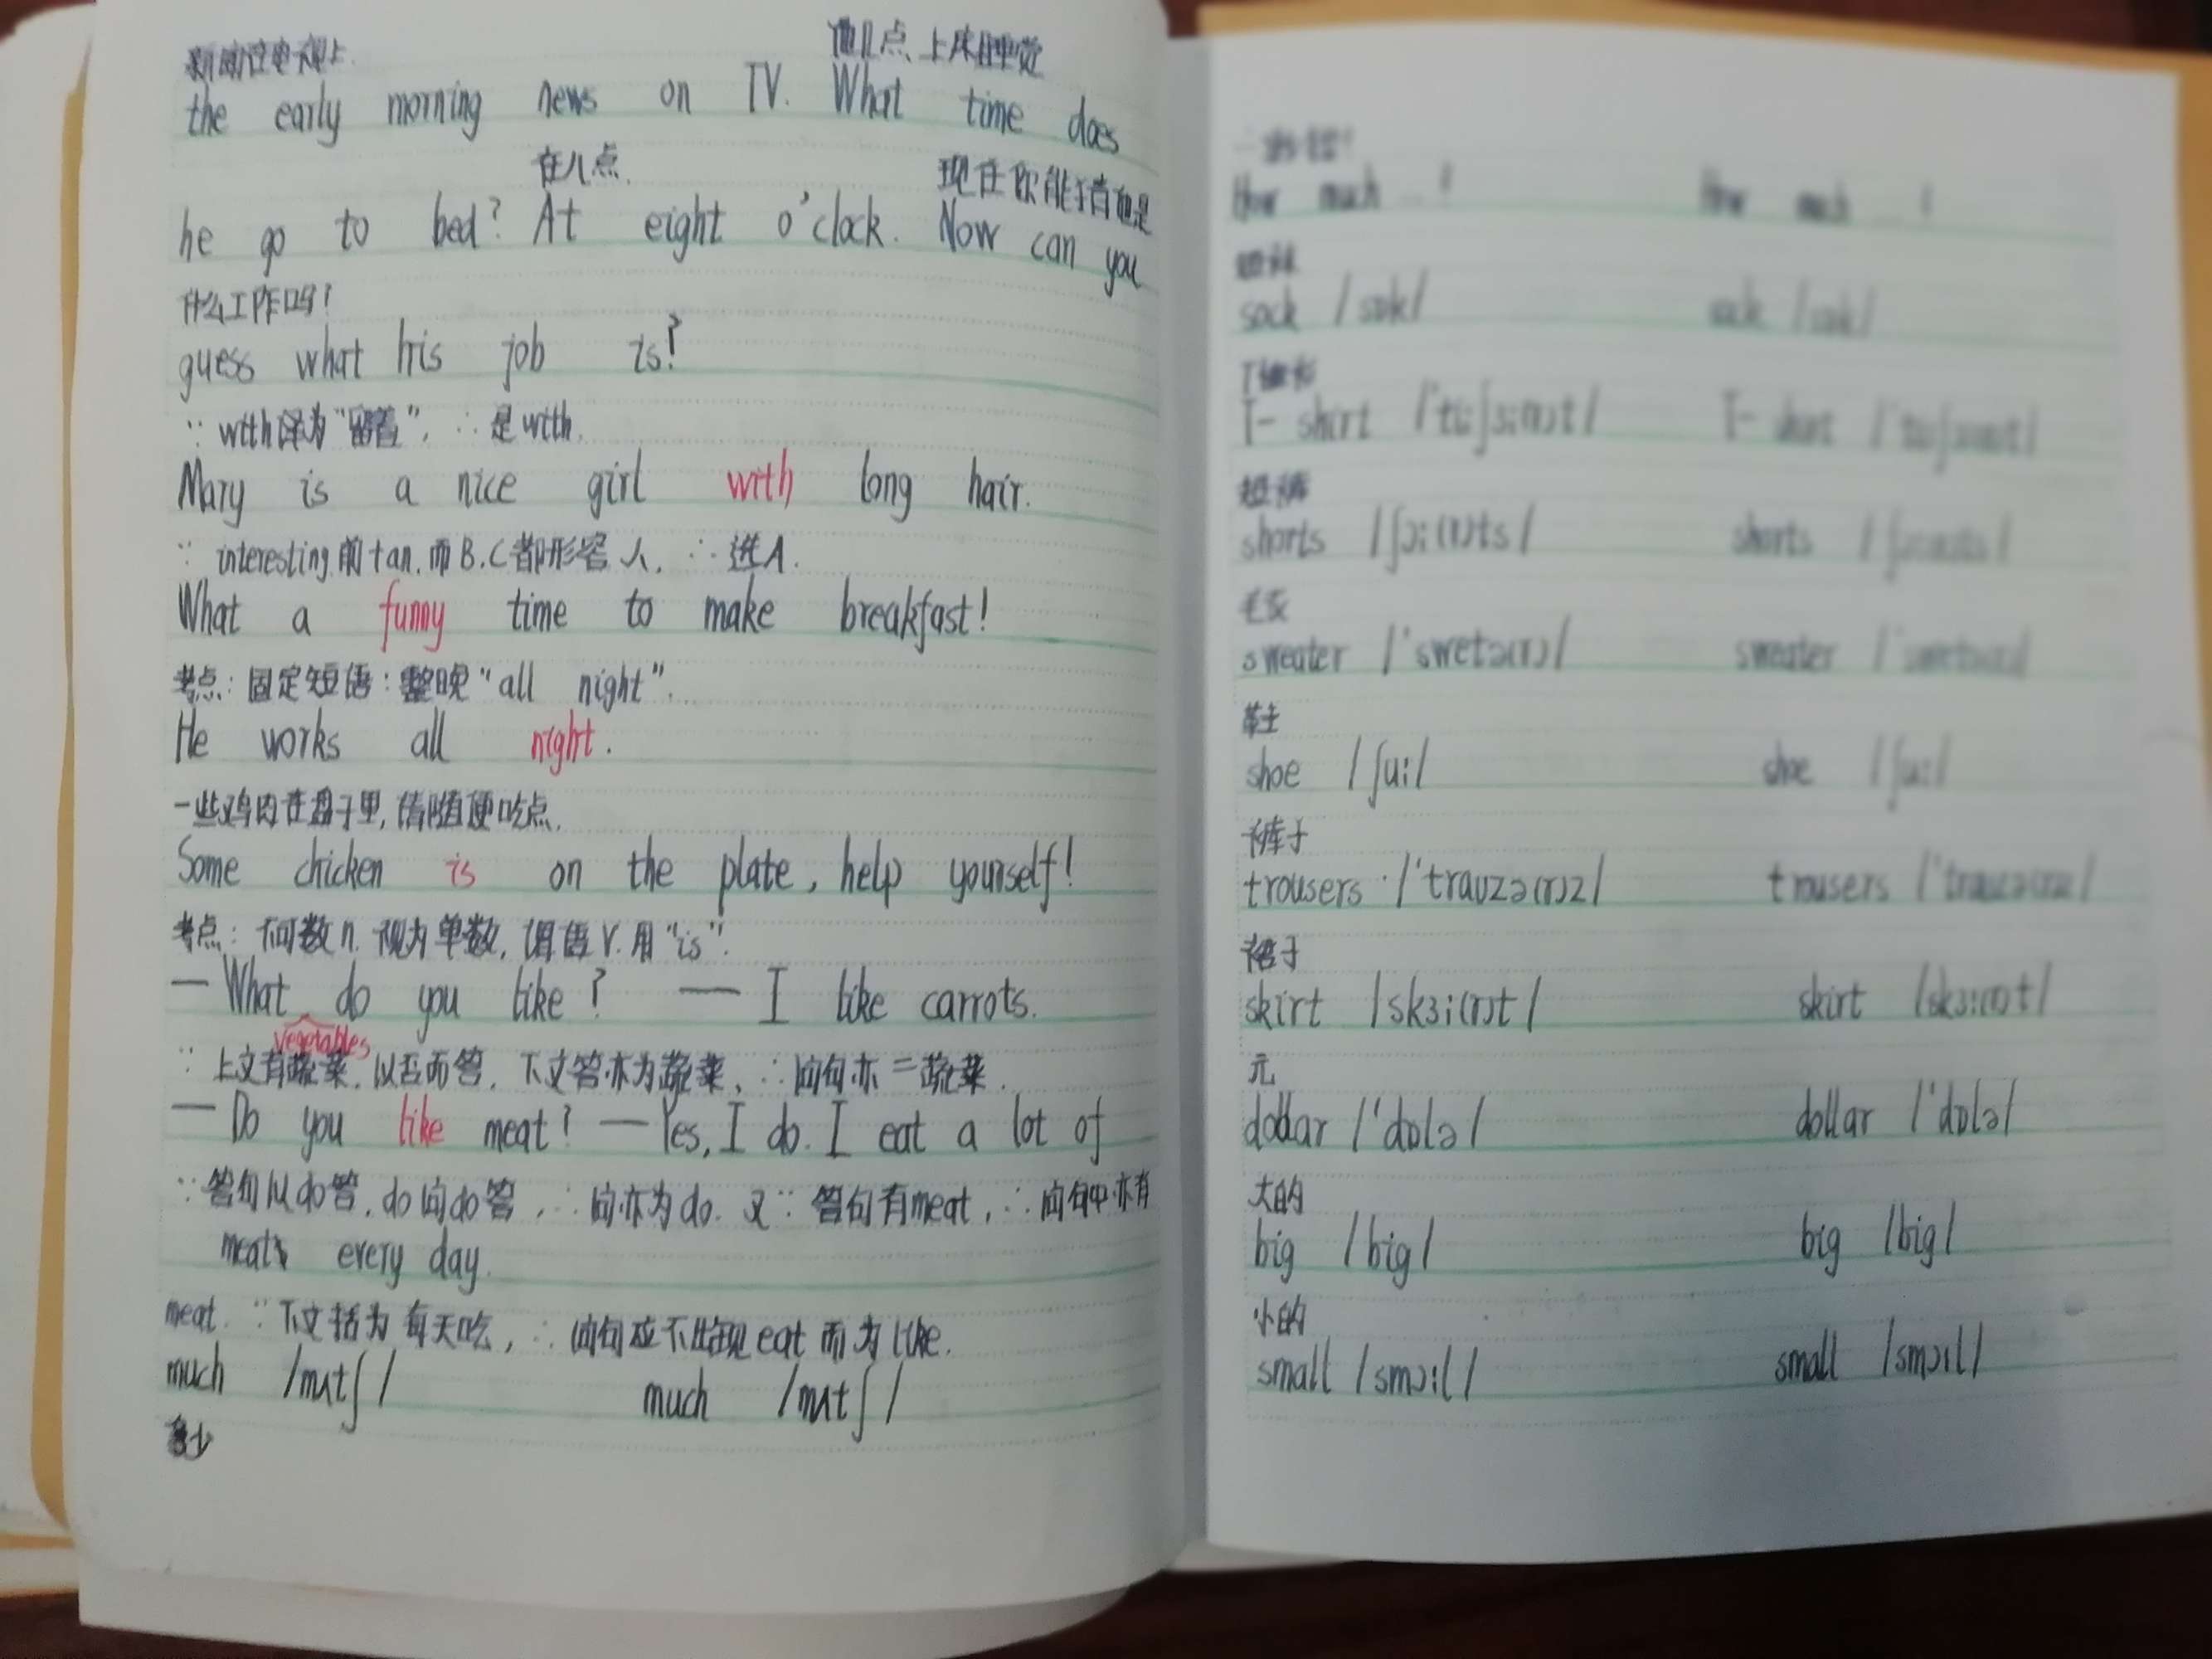 新闻在电视上. 他几点上床睡觉
the early morning news on TV. What time does
在八点. 现在你能猜他是
he go to bed? At eight o'clock. Now can you
什么工作吗?
guess what his job is?
∵ with译为“留着”, ∴ 是with.
Mary is a nice girl with long hair.
∵ interesting前+an, 而B.C都形容人, ∴ 选A.
What a funny time to make breakfast!
考点: 固定短语: 整晚“all night”.
He works all night.
一些鸡肉在盘子里, 请随便吃点.
Some chicken is on the plate, help yourself!
考点: 不可数n. 视为单数, 谓语V.用“is”.
— What do you like? — I like carrots.
vegetables
∵ 上文有蔬菜, 以否而答, 下文答亦为蔬菜, ∴ 问句亦=蔬菜.
— Do you like meat? — Yes, I do. I eat a lot of
∵ 答句以do答, do问do答, ∴ 问亦为do. 又∵ 答句有meat, ∴ 问句中亦有
meat every day.
meat. ∵ 下文括为每天吃, ∴ 问句应不出现eat而为like.
much /mʌtʃ/ much /mʌtʃ/
多少
How much ...? How much ...?
短袜
sock /sɒk/ sock /sɒk/
T恤衫
T-shirt /'ti:ʃɜ:(r)t/ T-shirt /'ti:ʃɜ:(r)t/
短裤
shorts /ʃɔ:(r)ts/ shorts /ʃɔ:(r)ts/
毛衣
sweater /'swetə(r)/ sweater /'swetə(r)/
鞋
shoe /ʃu:/ shoe /ʃu:/
裤子
trousers /'traʊzə(r)z/ trousers /'traʊzə(r)z/
裙子
skirt /skɜ:(r)t/ skirt /skɜ:(r)t/
元
dollar /'dɒlə/ dollar /'dɒlə/
大的
big /big/ big /big/
小的
small /smɔ:l/ small /smɔ:l/